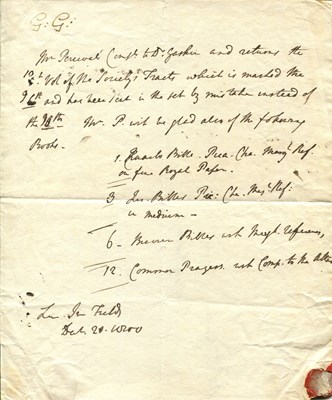 G: G:
Mr Perceval Comp.ts to Dr. Gaskin and returns the
10 Vol of the Society's Tracts which is marked the
9th and has been sent in the set by mistake instead of
the 10th. Mr. P. will be glad also of the following
Books.
1. Bible. Cha. Marg.l Ref.
on fine Royal Paper.
3 Bibles Cha: Mar.l Ref:
in medium -
6 - Bibles with Marg.l references,
12. Common Prayers with Comp. to the Altar
Lin. Inn Fields
Feb. 20. 1800